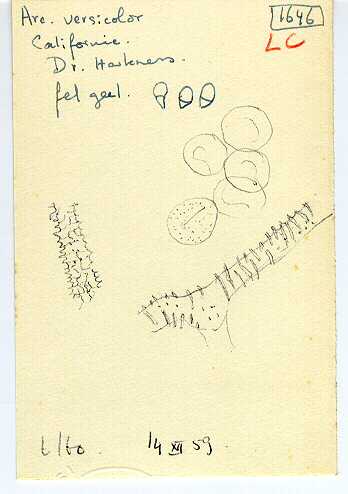 Arc. versicolor
Californie.
Dr. Harkness.
fel geel.
1646
LC
14 XII 59.